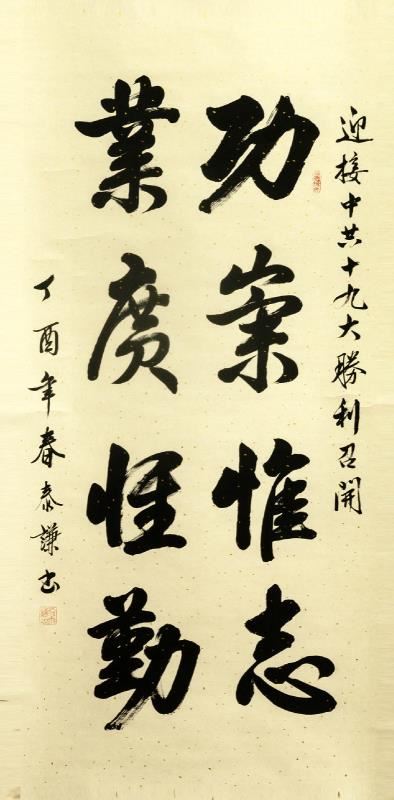 迎接中共十九大勝利召開
功崇惟志
業廣惟勤
丁酉年春泰謙書